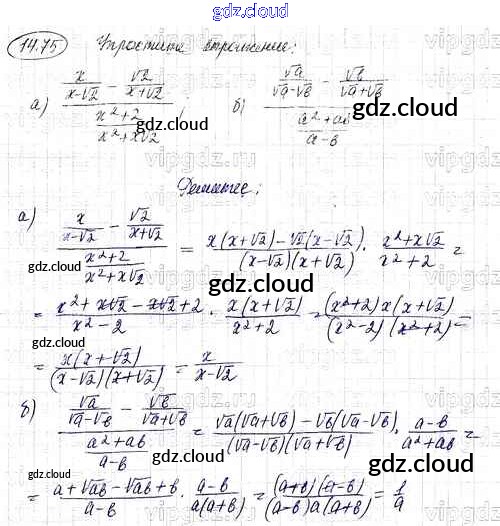 gdz.cloud
14.75 Упростите выражение:
а) (x/(x-√2) - √2/(x+√2)) / ((x²+2)/(x²+x√2)) ; б) (√a/(√a-√b) - √b/(√a+√b)) / ((a²+ab)/(a-b))
gdz.cloud
Решение:
а) (x/(x-√2) - √2/(x+√2)) / ((x²+2)/(x²+x√2)) = (x(x+√2)-√2(x-√2))/((x-√2)(x+√2)) · (x²+x√2)/(x²+2) =
gdz.cloud gdz.cloud
= (x²+x√2-x√2+2)/(x²-2) · (x(x+√2))/(x²+2) = ((x²+2)x(x+√2))/((x²-2)(x²+2)) =
gdz.cloud gdz.cloud
= (x(x+√2))/((x-√2)(x+√2)) = x/(x-√2)
б) (√a/(√a-√b) - √b/(√a+√b)) / ((a²+ab)/(a-b)) = (√a(√a+√b)-√b(√a-√b))/((√a-√b)(√a+√b)) · (a-b)/(a²+ab) =
gdz.cloud gdz.cloud
= (a+√ab-√ab+b)/(a-b) · (a-b)/(a(a+b)) = ((a+b)(a-b))/((a-b)a(a+b)) = 1/a
gdz.cloud gdz.cloud